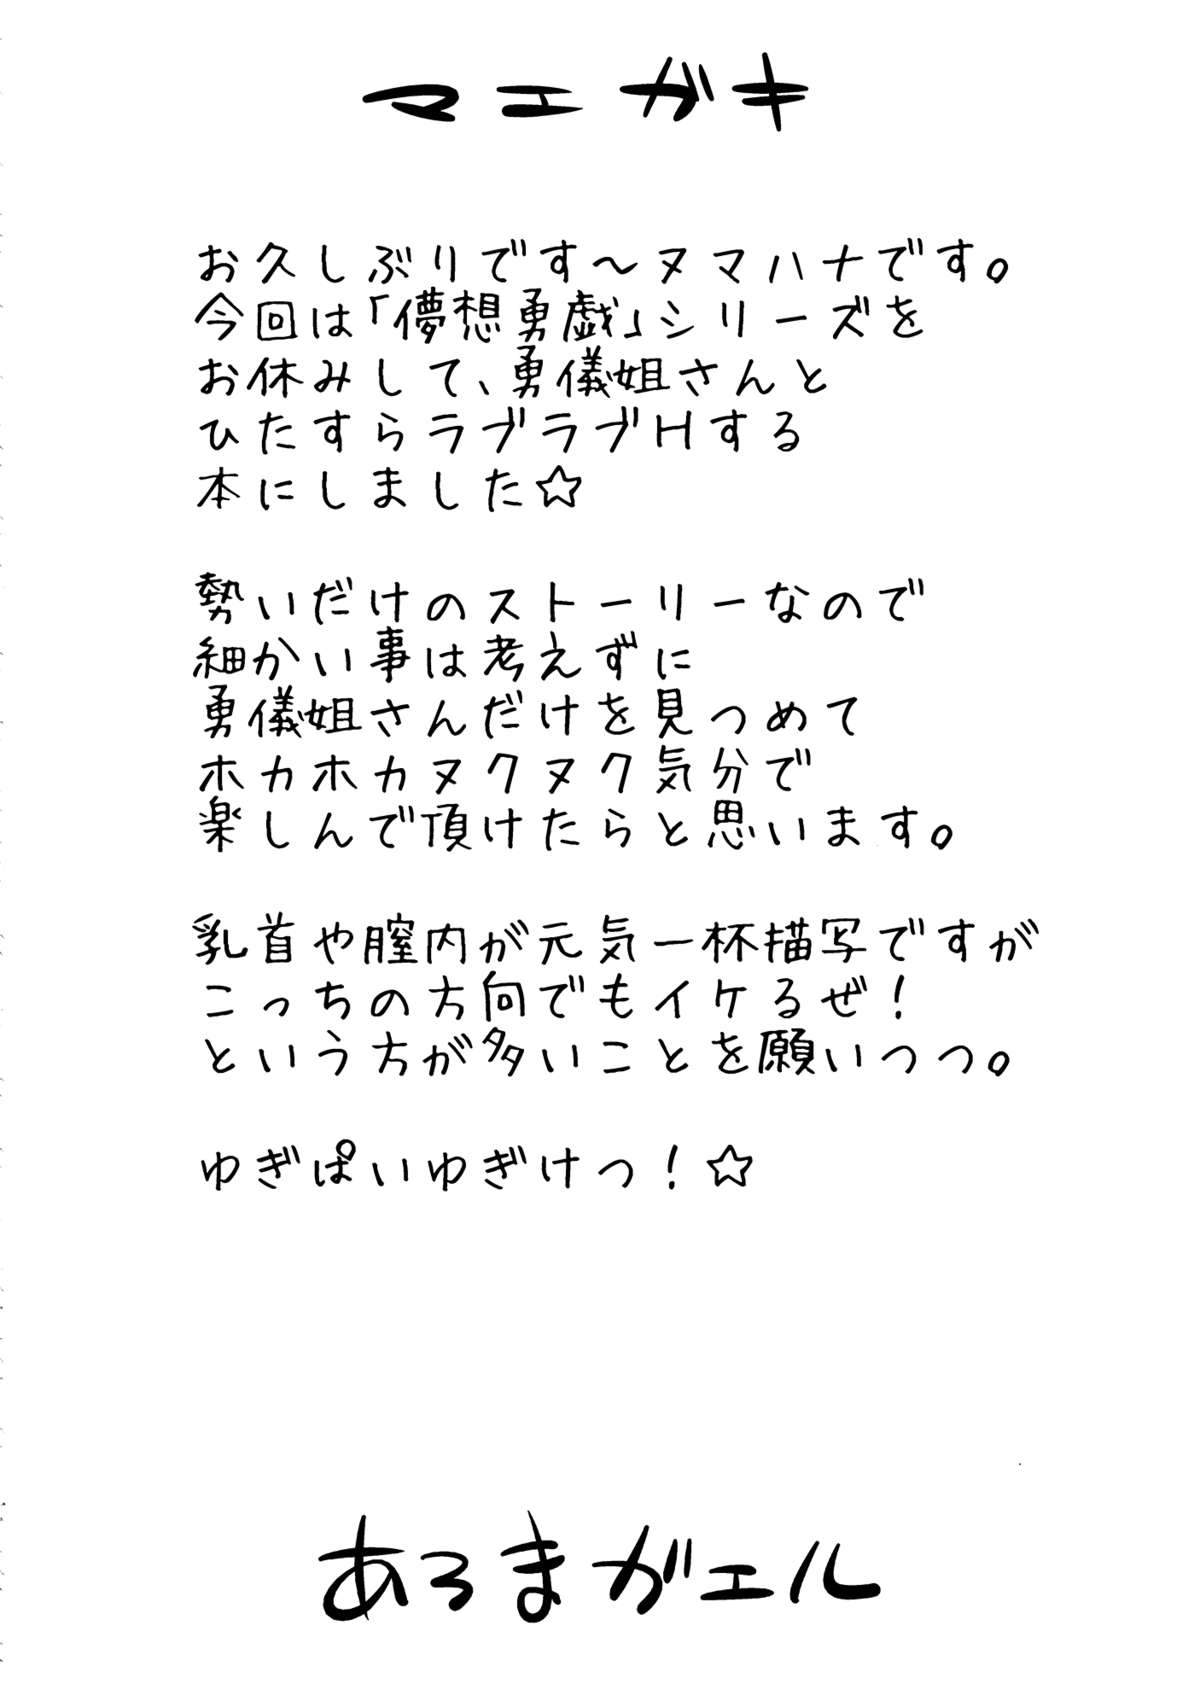 マエガキ
お久しぶりです～ヌマハナです。
今回は「儚想勇戯」シリーズを
お休みして、勇儀姐さんと
ひたすらラブラブHする
本にしました☆
勢いだけのストーリーなので
細かい事は考えずに
勇儀姐さんだけを見つめて
ホカホカヌクヌク気分で
楽しんで頂けたらと思います。
乳首や膣内が元気一杯描写ですが
こっちの方向でもイケるぜ！
という方が多いことを願いつつ。
ゆぎぱいゆぎけつ！☆
あろまガエル